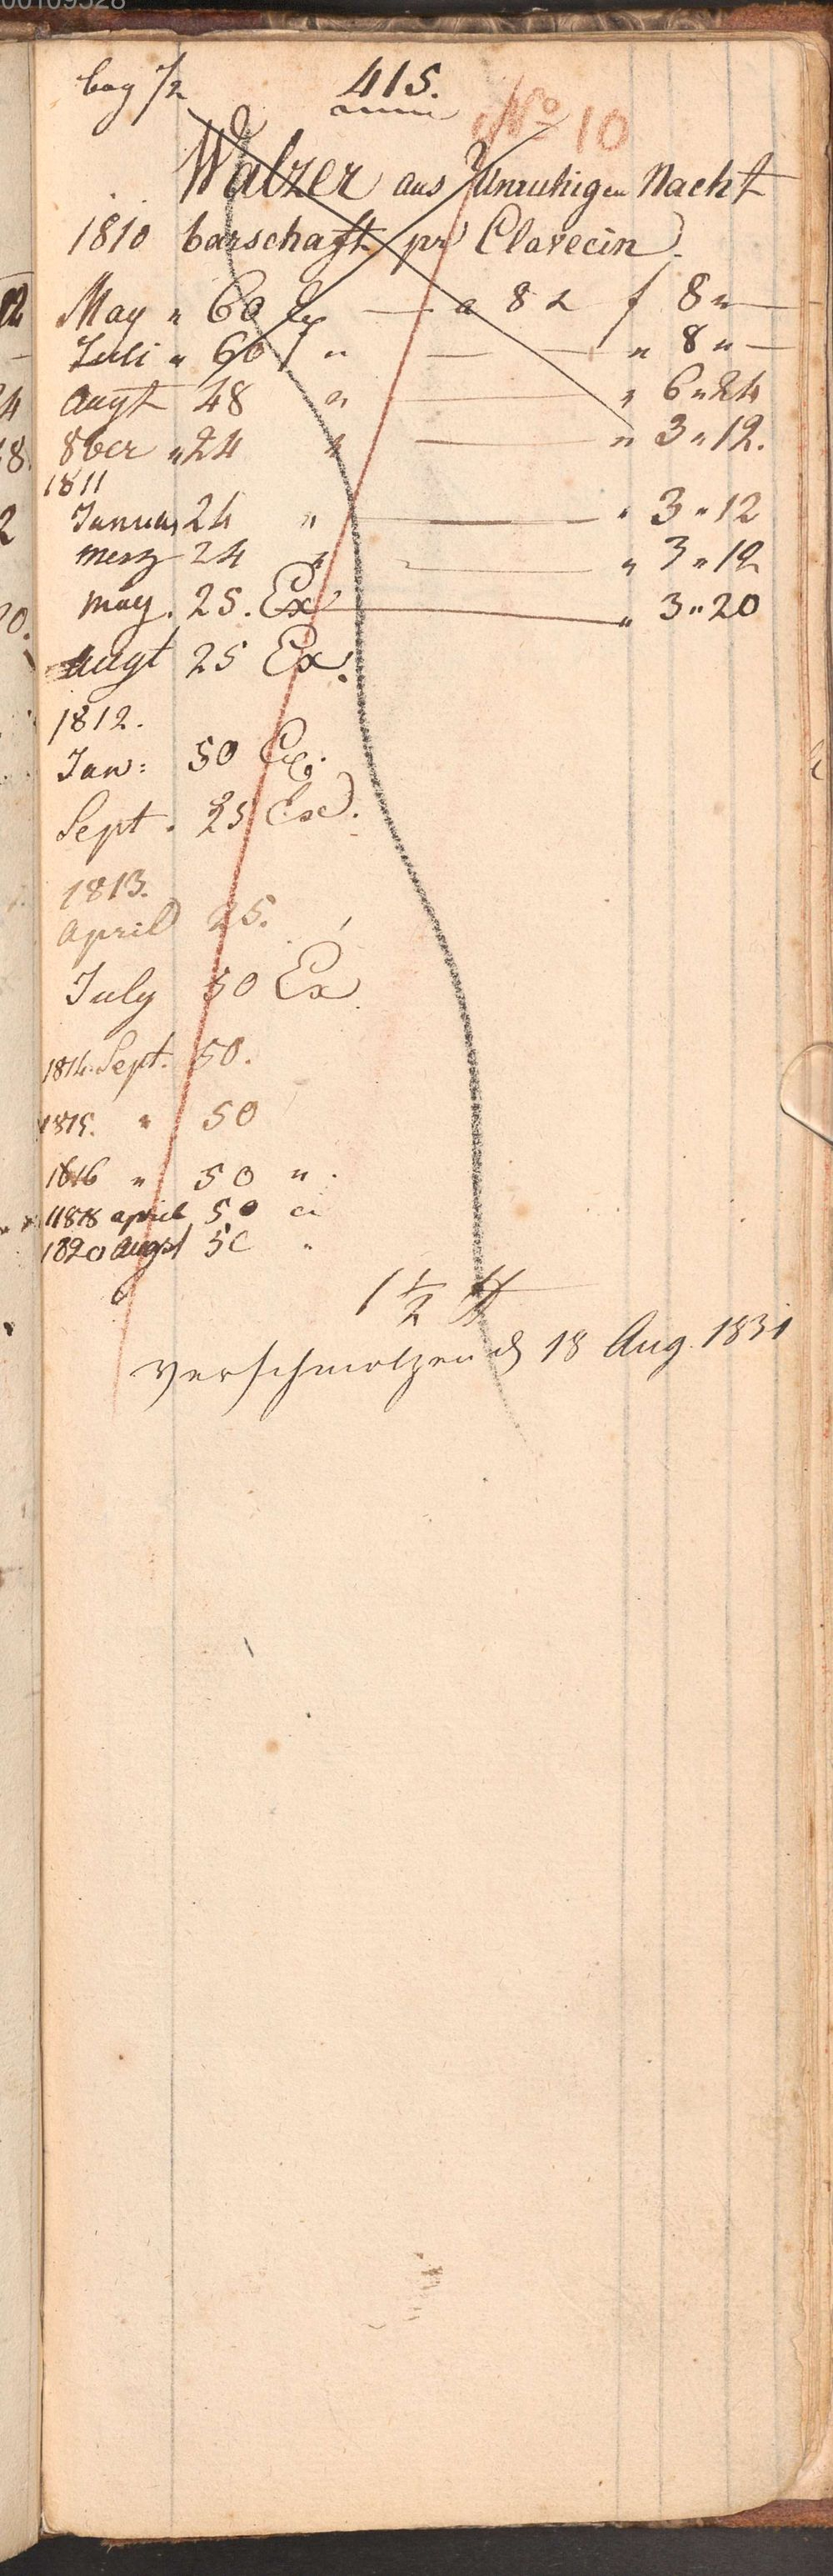 00109528
bog 1/2 415.
No 10
Walzer aus Unruhigen Nacht
1810 barschaft pr Clavecin.
May " 60 Ex — a 8 x f 8 " —
Juli " 60 " — — " 8 " —
Augt 48 " — " 6 " 24
8ber " 24 " — " 3 " 12.
1811
Januar 24 " — " 3 " 12
Merz 24 " — " 3 " 12
May. 25. Ex — " 3 " 20
Augt 25 Ex.
1812.
Jan: 50 Ex.
Sept. 25 Ex.
1813.
April 25.
July 50 Ex
1814. Sept. 50.
1815. " 50
1816 " 50 "
1818 april 50 "
1820 Augst 50 "
1 1/2 ℔
verschmolzen d 18 Aug. 1831